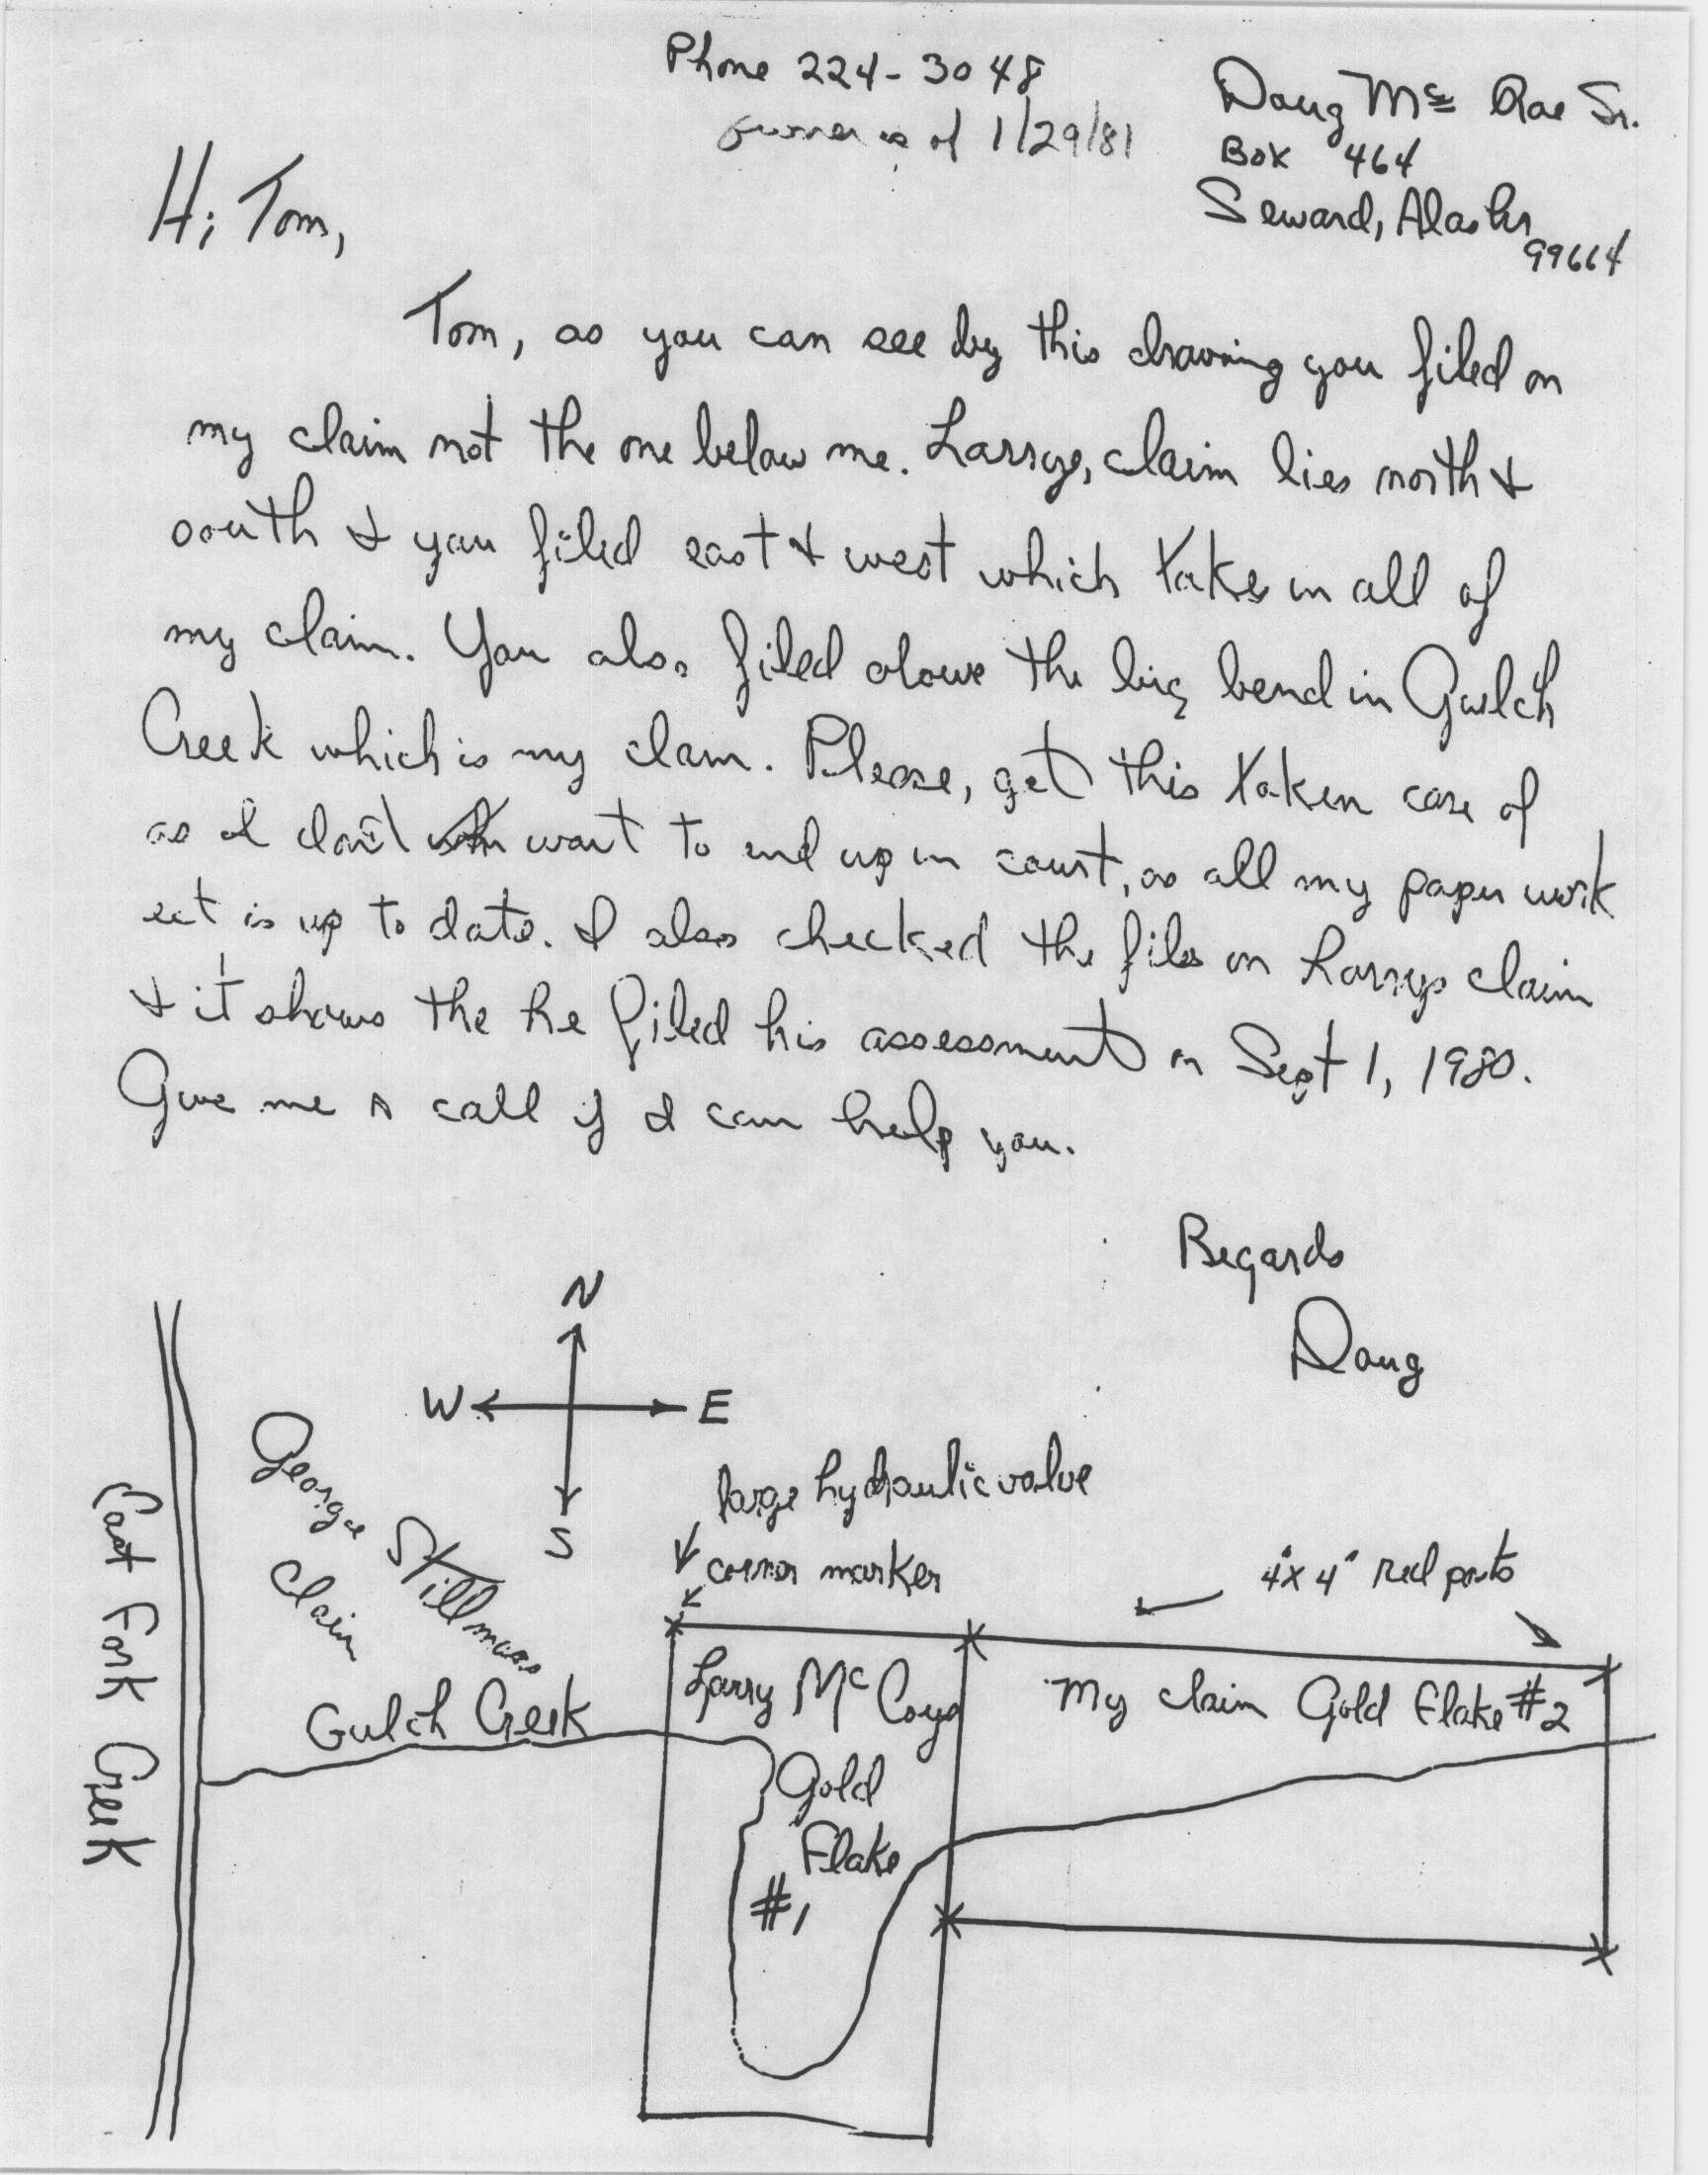 Phone 224-3048
owner as of 1/29/81
Doug Mc Rae Sr.
Box 464
Seward, Alaska
99664
Hi Tom,
Tom, as you can see by this drawing you filed on
my claim not the one below me. Larrys, claim lies north &
south & you filed east & west which takes in all of
my claim. You also filed above the big bend in Gulch
Creek which is my claim. Please, get this taken care of
as I don't want to end up in court, as all my paper work
ect is up to date. I also checked the files on Larrys claim
& it shows the he filed his assessment on Sept 1, 1980.
Give me a call if I can help you.
Regards
Doug
N
W E
S
large hydraulic valve
corner marker
4"x4" red posts
George Stillmans
Claim
East Fork Creek
Gulch Creek
Larry McCoys
Gold
Flake
#1
My claim Gold Flake #2